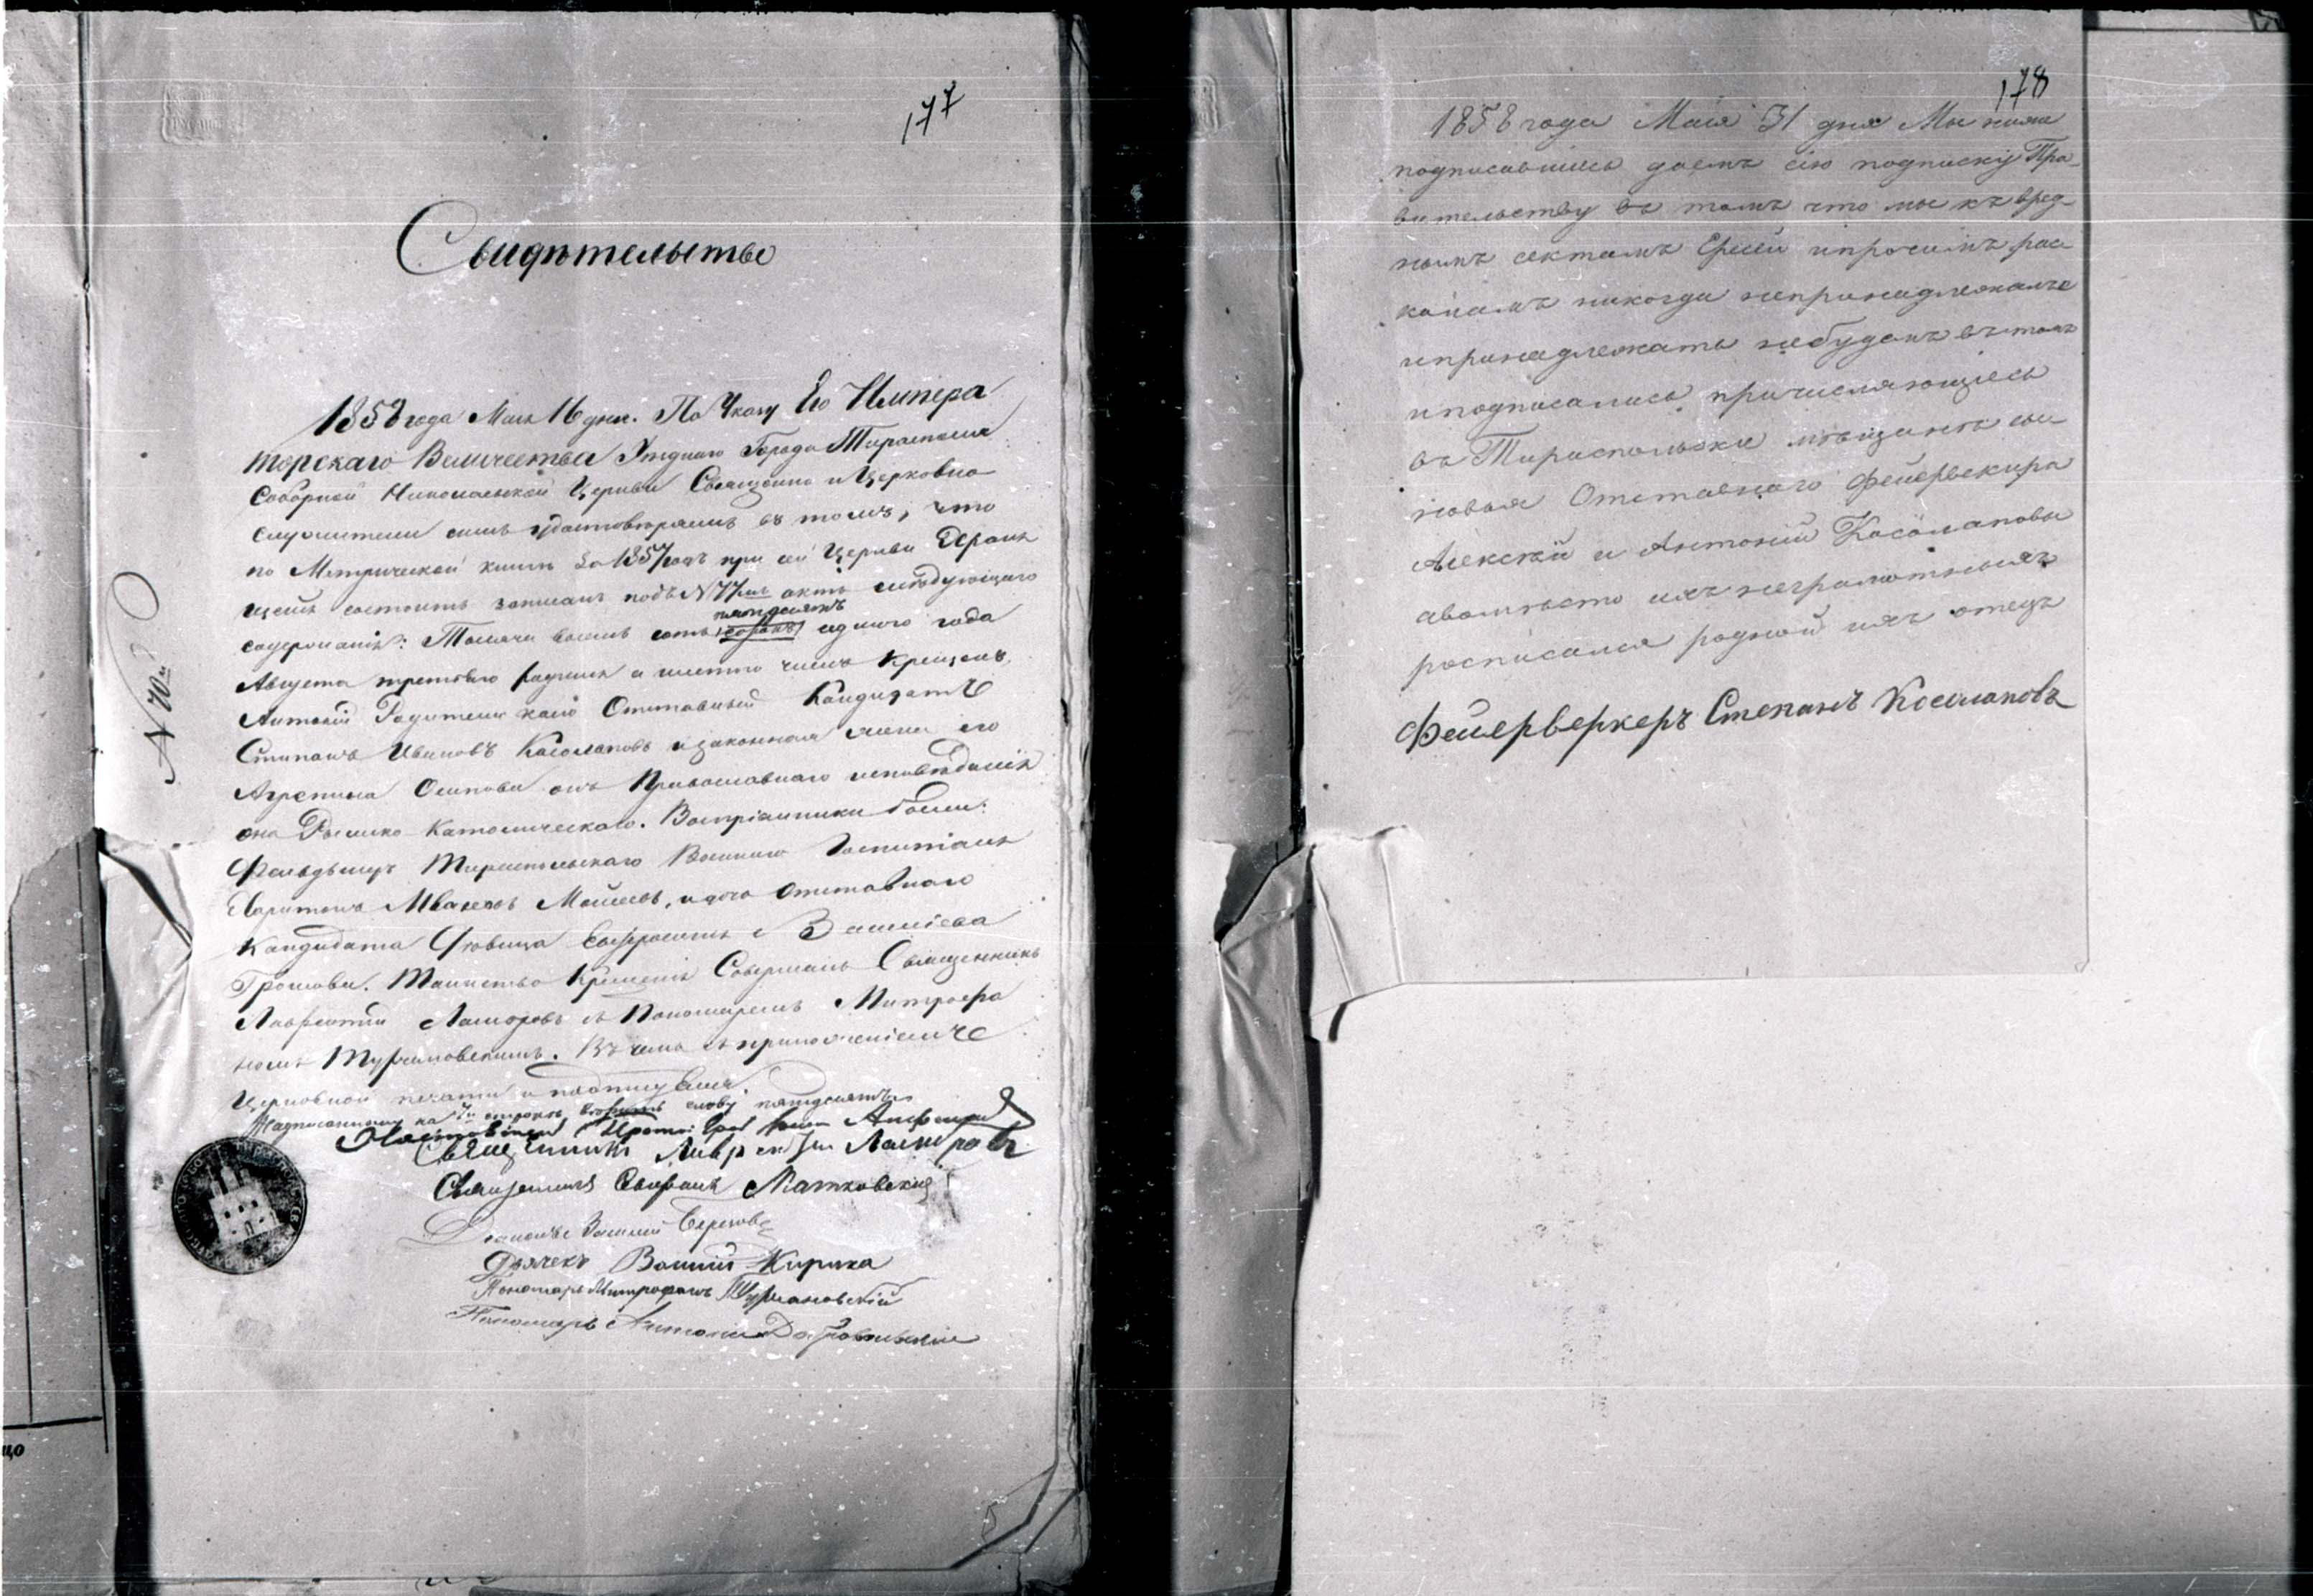 177
Свидѣтельство
N 70й
1858 года Мая 16 дня. По Указу Его Импера
торскаго Величества Уѣзднаго Города Тирасполя
Соборной Николаевской Церкви Священно и Церковно
служители симъ удостовѣряемъ въ томъ, что
по Метрической книгѣ за 1851 годъ при сей Церкви храня
щейся состоитъ записанъ подъ N 77мъ актъ слѣдующаго
пятдесятъ
содержанія: Тысяча восемь сотъ (сорокъ) одного года
Августа третьяго рожденъ а шестаго числа крещенъ
Антоній Родители коего Отставный Кандидатъ
Степанъ Ивановъ Косолаповъ и законная жена его
Агрепина Осипова онъ Православнаго исповѣданія
она Римско-Католическаго. Воспріемники были:
Фельдшеръ Тираспольскаго Военнаго Госпиталя
Харитонъ Мойсеевъ, и дочь Отставнаго
Кандидата Евфросинія
Громова. Таинство Крещенія Совершалъ Священникъ
Лаврентій съ Пономаремъ Митрофа
номъ Туржановскимъ. Въ чемъ съ приложеніемъ
Церковной печати и подписуемся.
Надписанному на 7й строкѣ слову пятдесятъ
Протоіерей
Священникъ Лаврентій
Священникъ Стефанъ Матковскій
Діаконъ Василій
Дьячекъ Василій Кирика
Пономарь Митрофанъ Туржановскій
Пономарь Антоній
178
1858 года Мая 31 дня Мы ниже
подписавшіеся даемъ сію подписку Пра-
вительству въ томъ что мы къ вред-
нымъ сектамъ Ересей и прочимъ рас
коламъ никогда непринадлежали
и принадлежать небудемъ въ томъ
и подписались причисляющіеся
въ Тираспольскіе мѣщане сы-
новья Отставнаго фейерверкира
Алексѣй и Антоній Косолаповы
авомѣсто ихъ неграмотныхъ
росписался родной ихъ отецъ
Фейерверкеръ Степанъ Косолаповъ